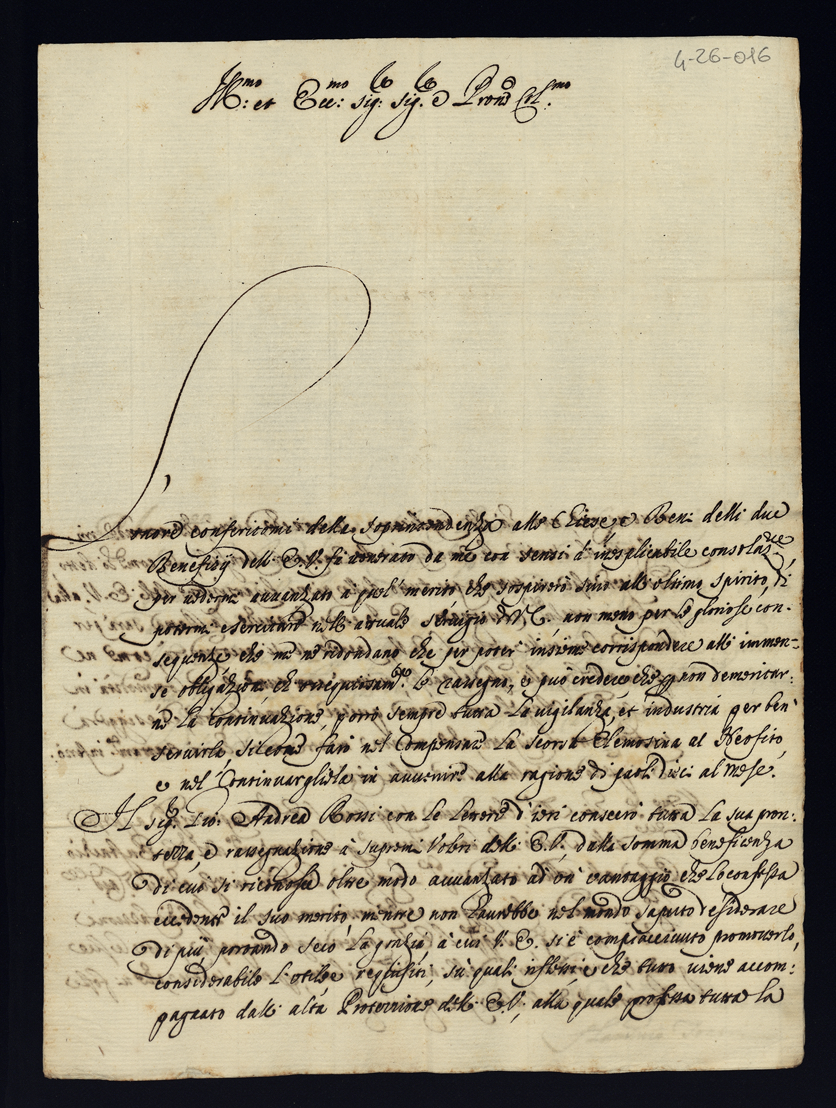 4-26-016
Ill.mo et Ecc.mo sig.re sig.re e Prone Col.mo
L'onore conferitomi della sopraintendenza alle Chiese, e Beni delli due
Benefizij dell' E.V. fù incontrato da me con sensi d'inesplicabile consolaz.ne
per vedermi avvanzato a quel merito che sospirerò sino all' ultimo spirito, di
potermi esercitare nell' attuale servigio dell' E.V. non meno per le gloriose con-
sequenze che me ne ridondano che per poter insieme corrispondere alle immen-
se obligazioni, che ossequiosam.te le rassegno, e può credere che per non demeritar-
ne la continuazione, porrò sempre tutta la vigilanza, et industria per ben
servirla, sicome farò nel Compensare la scorsa Elemosina al Neofito,
e nel Continuargliela in avvenire alla ragione di paoli dieci al mese.
Il sig. Andrea Rossi con le lettere d'ieri conscerì tutta la sua pron-
tezza, e rassegnazione a' supremi Voleri dell' E.V. dalla somma beneficenza
di cui si riconosce oltre modo avvanzato ad un vantaggio che lo confessa
eccedente il suo merito, mentre non l'avrebbe nel mondo saputo desiderare
di più, portando seco la grazia à cui V.E. si è compiacciuto promoverlo,
considerabile l'utile e requisiti, sù quali riflette, e che tutto viene accom-
pagnato dall' alta Protezzione dell' E.V. alla quale professa tutta la